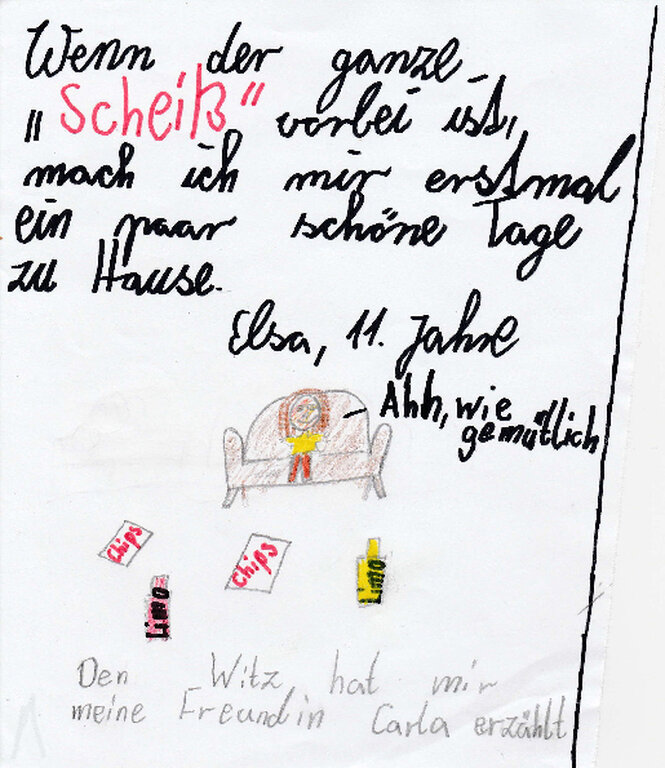 Wenn der ganze
"Scheiß" vorbei ist,
mach ich mir erstmal
ein paar schöne Tage
zu Hause.
Elsa, 11. Jahre
Ahh, wie
gemütlich
Chips
Chips
Limo
Limo
Den Witz hat mir
meine Freundin Carla erzählt